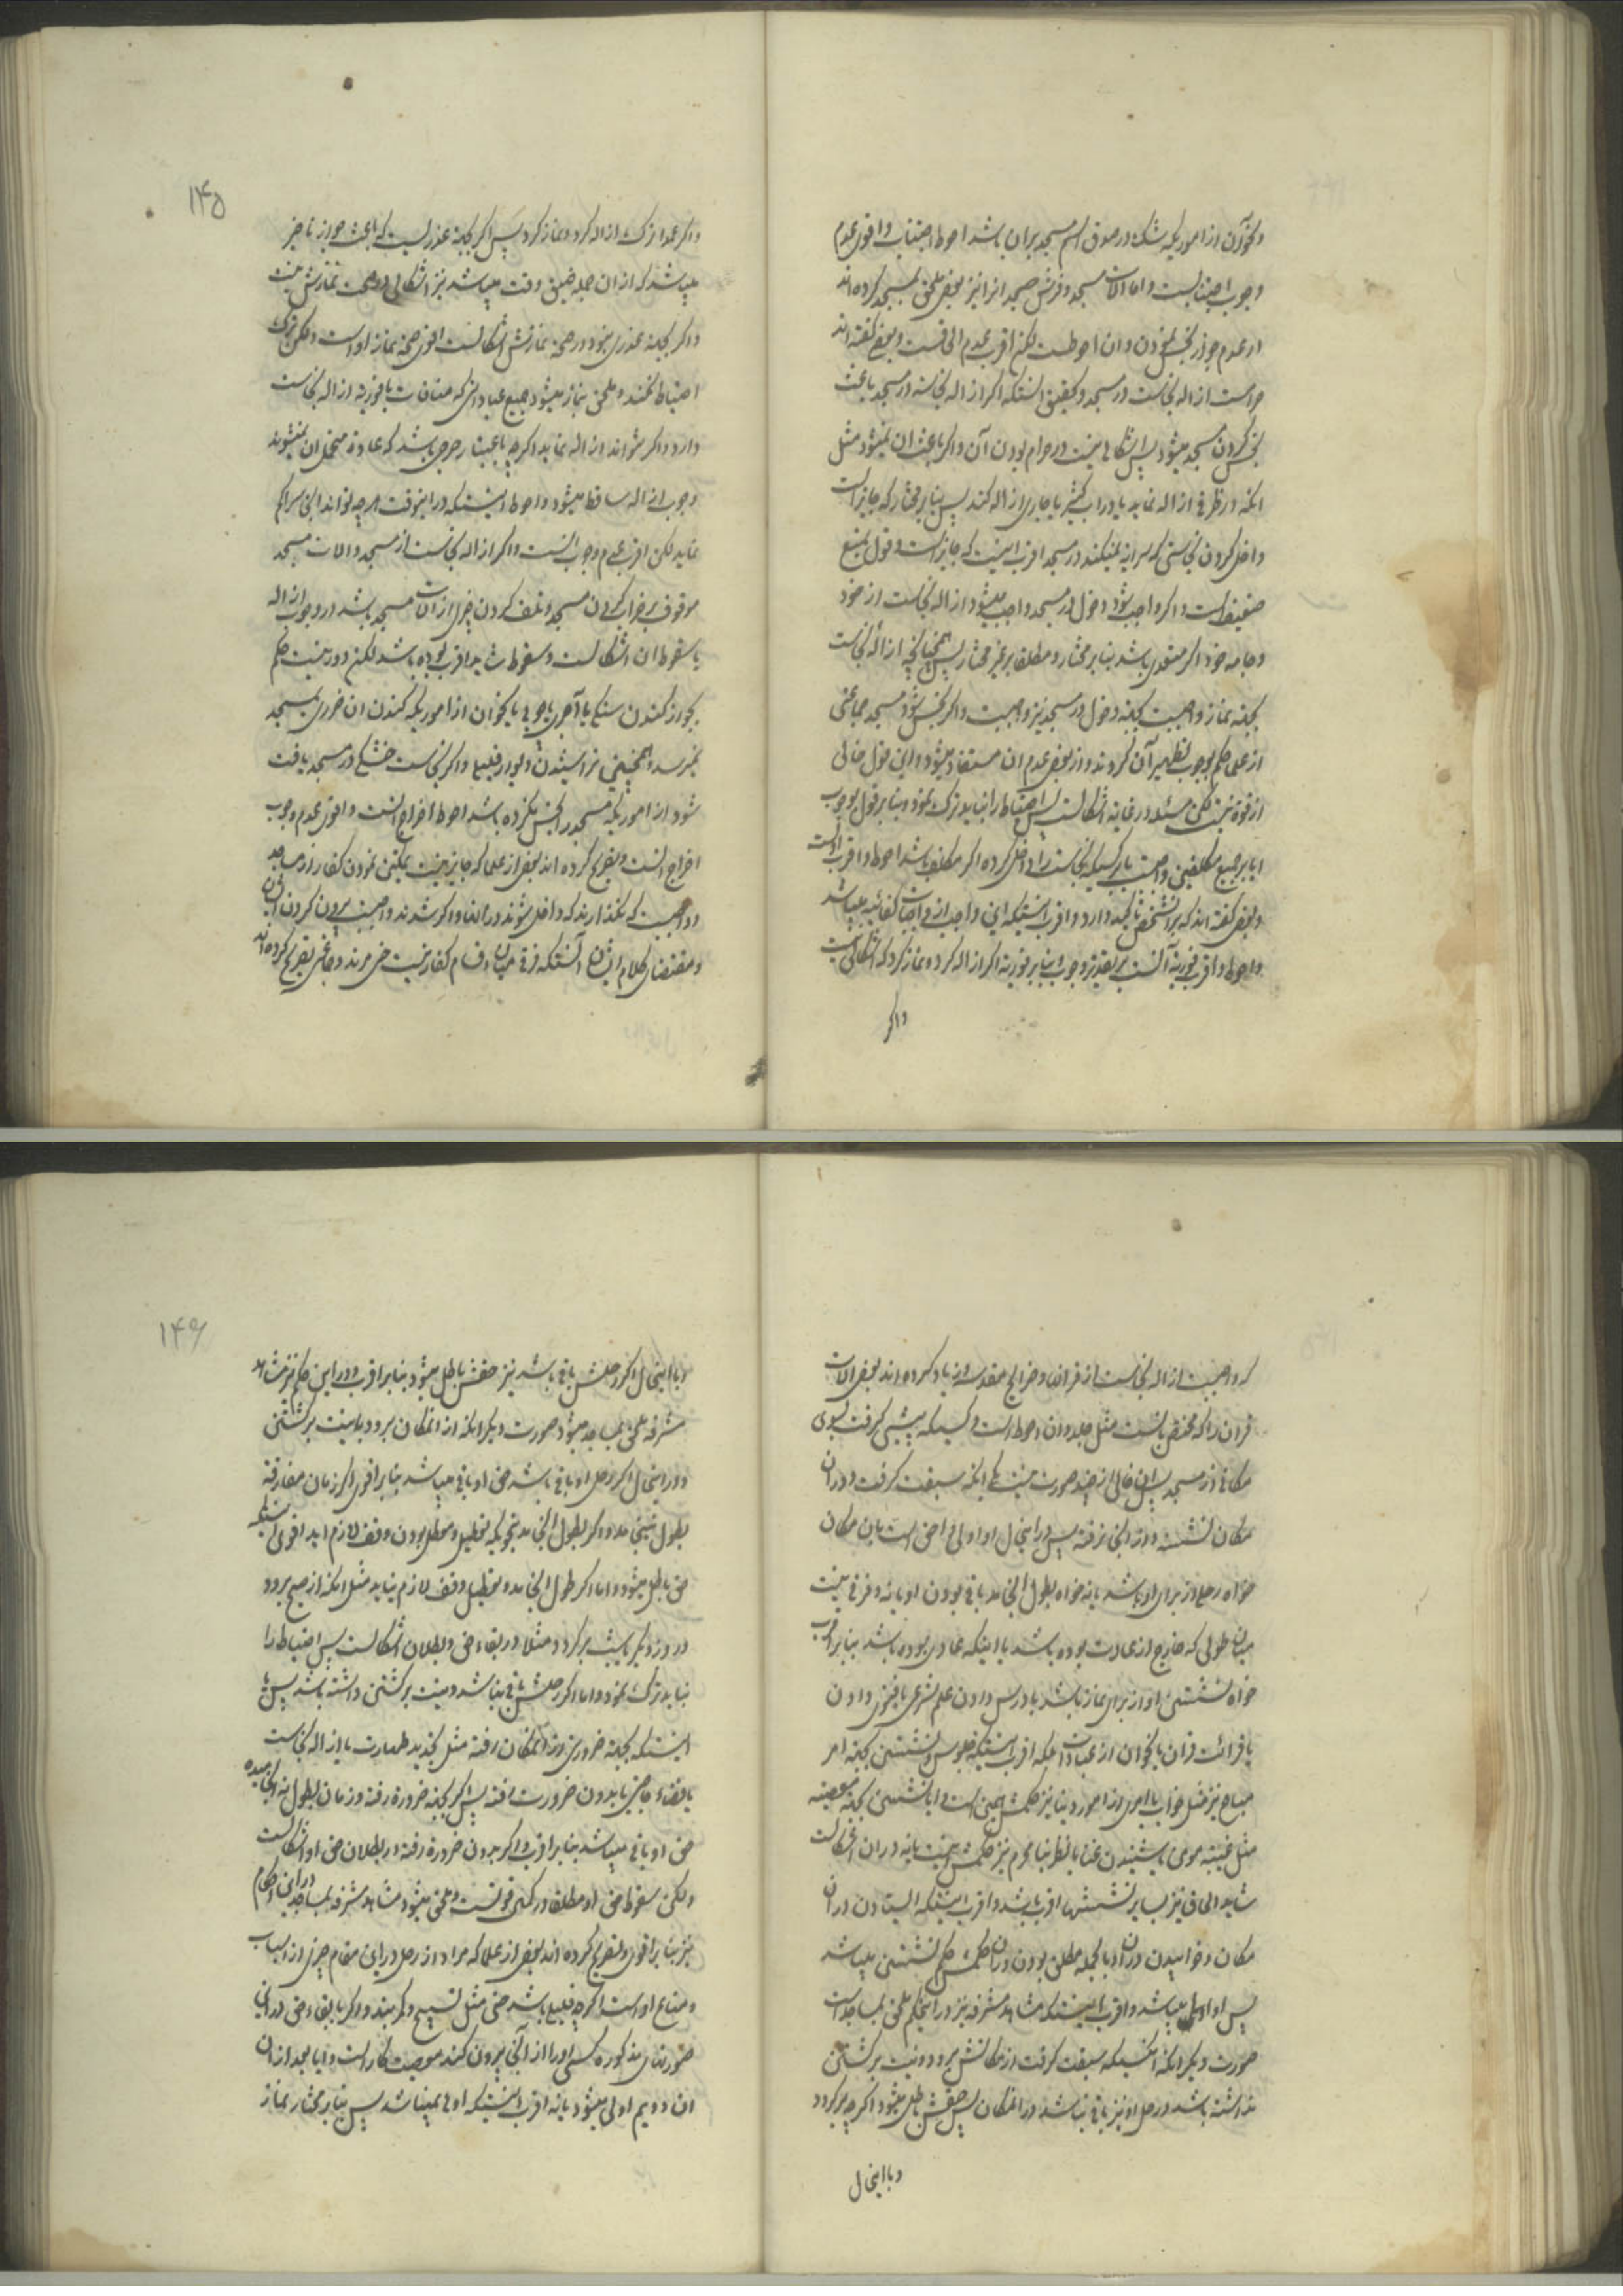 ونحو آن از اموریکه شک در صدق اسم مسجد بر آن باشد احوط اجتناب و اقوی عدم
وجوب اجتنابست و اما الات مسجد و فرش مسجد انرا نیز بعضی ملحق بمسجد کرده اند
در عدم جواز نجس نمودن و ان احوطست لکن اقرب عدم الحاقست و بعضی گفته اند
حرامست ازاله نجاست در مسجد و تحقیق انستکه اگر ازاله نجاسة در مسجد باعث
نجس کردن مسجد میشود پس اشکالی نیست در حرام بودن آن و اگر باعث ان نمیشود مثل
انکه در ظرفی ازاله نماید یا در اب کثیر یا جاری ازاله کند پس بنابر مختار که جایز است
داخل کردن نجاستی که سرایة نمیکند در مسجد اقرب اینست که جایز است و قول بمنع
ضعیف است و اگر واجب شود دخول در مسجد واجب میشود ازاله نجاست از خود
و جامه خود اگر متعدی باشد بنابر مختار و مطلقا بر غیر مختار پس همچنانچه ازاله نجاست
بجهة نماز واجبست بجهة دخول در مسجد نیز واجبست و اگر نجس شود مسجد جماعتی
از علما حکم بوجوب تطهیر آن کردند و از بعضی عدم ان مستفاد میشود و این قول خالی
از قوة نیست لکن مسئله در غایة اشکالست پس احتیاط را نباید ترک نمود و بنابر قول بوجوب
ایا بر جمیع مکلفین واجبست یا بر کسیکه نجاست را داخل کرده اگر مکلف باشد احوط و اقرب اولست
و بعضی گفته اند که بر انشخص تاکید دارد و اقرب اینستکه این واجب از واجبات کفائیه میباشد
و احوط و اقرب فوریة آنست بر تقدیر وجوب و بنابر فوریة اگر ازاله کرد و نماز کرد که اشکالی نیست
واگر
۱۴۵
واگر عمدا ترک ازاله کرد و نماز کرد پس اگر بجهة عذریست که باعث جواز تاخیر
میباشد که از ان جمله ضیق وقت میباشد نیز اشکالی در صحت نمازش نیست
و اگر بجهة عذری نبود در صحة نمازش اشکالست اقوی صحة نماز اوست ولکن ترک
احتیاط نکنند و ملحق بنماز میشود جمیع عباداتی که منافات با فوریة ازاله نجاست
دارد و اگر نتواند ازاله نماید اگرچه باعتبار حرجی باشد که عادة متحمل ان نمیشوند
وجوب ازاله ساقط میشود و احوط اینستکه در اینوقت هر چه تواند این سراکم
نماید لکن اقرب عدم وجوب انست و اگر ازاله نجاست از مسجد و الات مسجد
موقوف بر خراب کردن مسجد و تلف کردن چیزی از الات مسجد باشد در وجوب ازاله
یا سقوط ان اشکالست و سقوط شاید اقرب بوده باشد لکن دور نیست حکم
بجواز کندن سنگی یا آجری یا چوبی یا نحو ان از اموریکه کندن ان ضرری بمسجد
نمیرسد و همچنین تراشیدن دیوار قلیلی و اگر نجاست خشکی در مسجد یافت
شود از اموریکه مسجد را نجس نکرده باشد احوط اخراج انست و اقوی عدم وجوب
اخراج انست و تصریح کرده اند بعضی از علما که جایز نیست تمکین نمودن کفار از مساجد
و واجبست که نگذارند که داخل شوند در انها و اگر شدند واجبست بیرون کردن ایشان
و مقتضای کلام ایشان آنستکه فرقی میان اقسام کفار نیست حتی مرتد و جماعتی تصریح کرده اند
که واجبست ازاله نجاست از قران و ضرایح مقدسه و زیاد کرده اند بعضی الات
قران را که مختص باوست مثل جلد و ان احوط است و کسیکه پیشی گرفت بسوی
مکانی از مسجد پس ان خالی از چند صورت نیست یکی انکه سبقت گرفت و در ان
مکان نشسته و از انجا نرفته پس در اینحال او اولی و احق است بان مکان
خواه رحلی از برای او باشد یا نه خواه بطول انجامد باقی بودن او یا نه و فرقی نیست
میان طولی که خارج از عادت بوده باشد یا اینکه عادی بوده باشد بنابر اقرب
خواه نشستن او از برای نماز باشد یا درس دادن علم شرعی یا فتوی دادن
یا قرائت قران یا نحو ان از عبادات بلکه اقرب اینستکه جلوس و نشستن بجهة امر
مباح نیز مثل خواب یا امری از امور دنیا نیز حکمش همین است و ایا نشستن بجهة معصیة
مثل غیبة مومن یا شنیدن غنا یا نظر بنامحرم نیز حکمش اینست یا نه در ان اشکالست
شاید الحاق نیز بسایر نشستنها اقرب باشد و اقرب اینستکه ایستادن در ان
مکان و خوابیدن در ان و بالجمله مطلق بودن در ان حکمش حکم نشستن میباشد
پس او اولی میباشد و اقرب اینستکه مشاهد مشرفه نیز در اینحکم ملحق بمساجد است
صورت دیگر انکه انکسیکه سبقت گرفت از مکانش برود و نیت برگشتن
نداشته باشد و رحل او نیز باقی نباشد در انمکان پس حقش باطل میشود اگرچه برگردد
و با اینحال
۱۴۶
و با اینحال اگر رحلش باقی باشد نیز حقش باطل میشود بنابر اقرب و در این حکم نیز مشاهد
مشرفه ملحق بمساجد میشود صورت دیگر انکه از انمکان برود با نیت برگشتن
و در اینحال اگر رحل او باقی باشد حق او باقی میباشد بنابر اقوی اگر زمان مفارقة
بطول نینجامد و اگر بطول انجامد بنحویکه تعطیل و معطل بودن وقف لازم اید اقوی اینستکه
حق باطل میشود و اما اگر طول انجامد و تعطیل وقف لازم نیاید مثل انکه از صبح برود
در روز دیگر یا شب برگردد مثلا در بقاء حق و بطلان اشکالست پس احتیاط را
نباید ترک نمود و اما اگر رحلش باقی نباشد و نیت برگشتن داشته باشد پس یا
اینستکه بجهة ضروری از انمکان رفته مثل تجدید طهارت یا ازاله نجاست
یا قضاء حاجتی یا بدون ضرورت رفته پس اگر بجهة ضرورة رفته و زمان بطول نه انجامیده
حق او باقی میباشد بنابر اقرب و اگر بدون ضرورة رفته در بطلان حق او اشکالست
ولکن سقوط حق او مطلقا در کمال قوتست و ملحق میشود مشاهد مشرفه بمساجد در این احکام
نیز بنابر اقوی و تصریح کرده اند بعضی از علما که مراد از رحل در این مقام چیزی از اسباب
و متاع اوست اگرچه قلیلی باشد حتی مثل تسبیح و کمربند و اگر با بقاء حق در این
صورتهای مذکوره کسی او را از انجا بیرون کند معصیت کار است و ایا بعد از ان
ان دویم اولی میشود یا نه اقرب اینستکه اولی نمیباشد پس بنابر مختار نماز